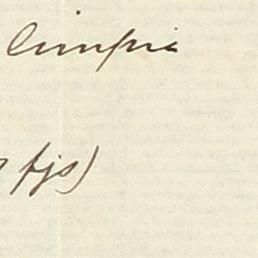 limpia
fjs)